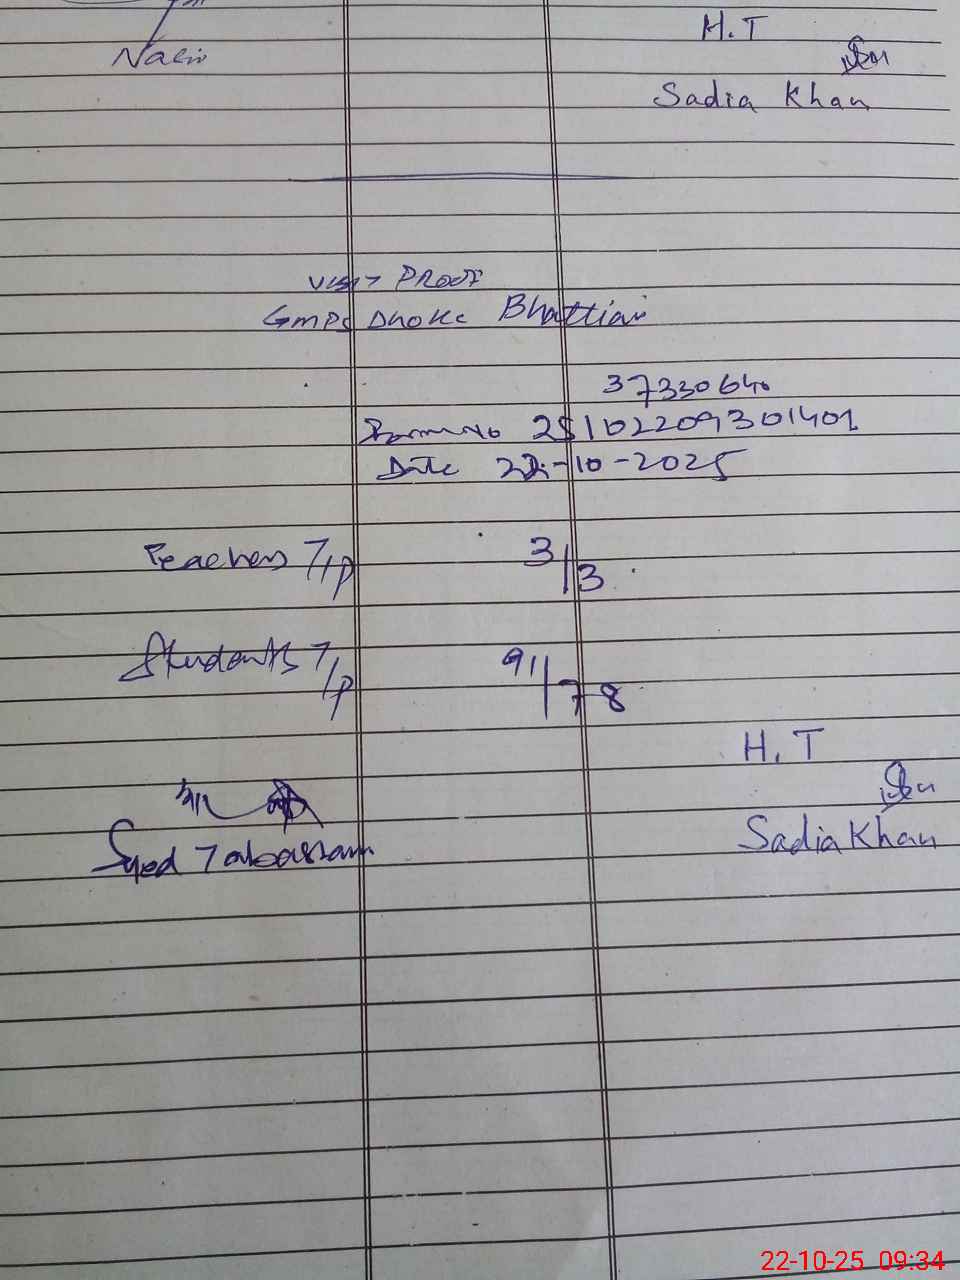 H.T
Sadia Khan
Visit Proof
GMPS Dhoke Bhattian
37330640
Form No 25102209301401
Date 22-10-2025
Teachers T/P 3/3
Students T/P 91/78
H.T
Syed Tabassam
Sadia Khan
22-10-25 09:34